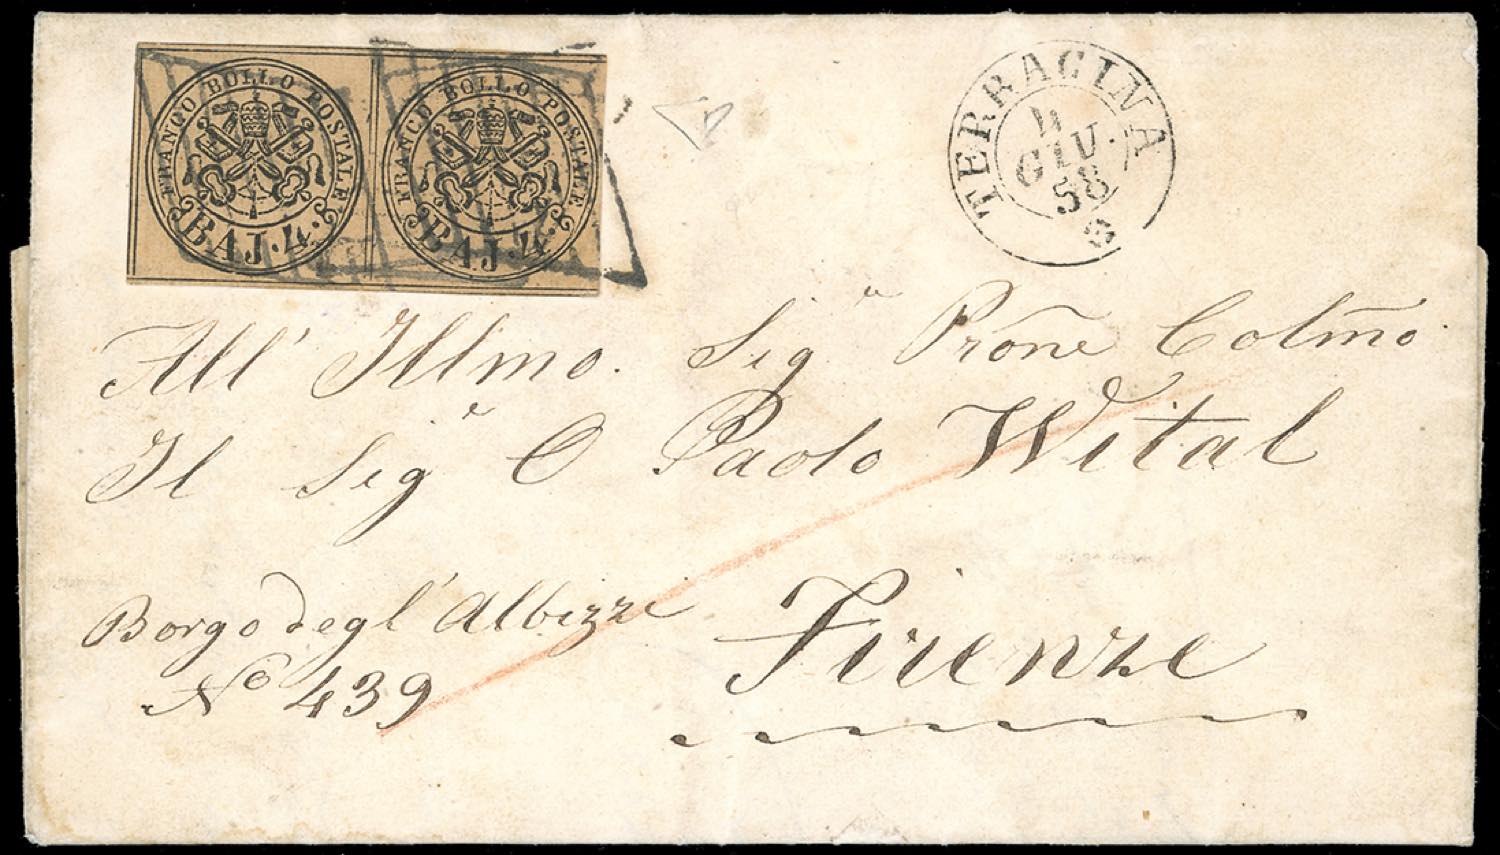 FRANCO BOLLO POSTALE
BAJ. 4.
FRANCO BOLLO POSTALE
BAJ. 4.
TERRACINA
4
GIU.
58
All' Illmo. Sig.e Prõne Colmõ
Il Sig.e Paolo Wital
Borgo degl' Albizzi
No 439
Firenze